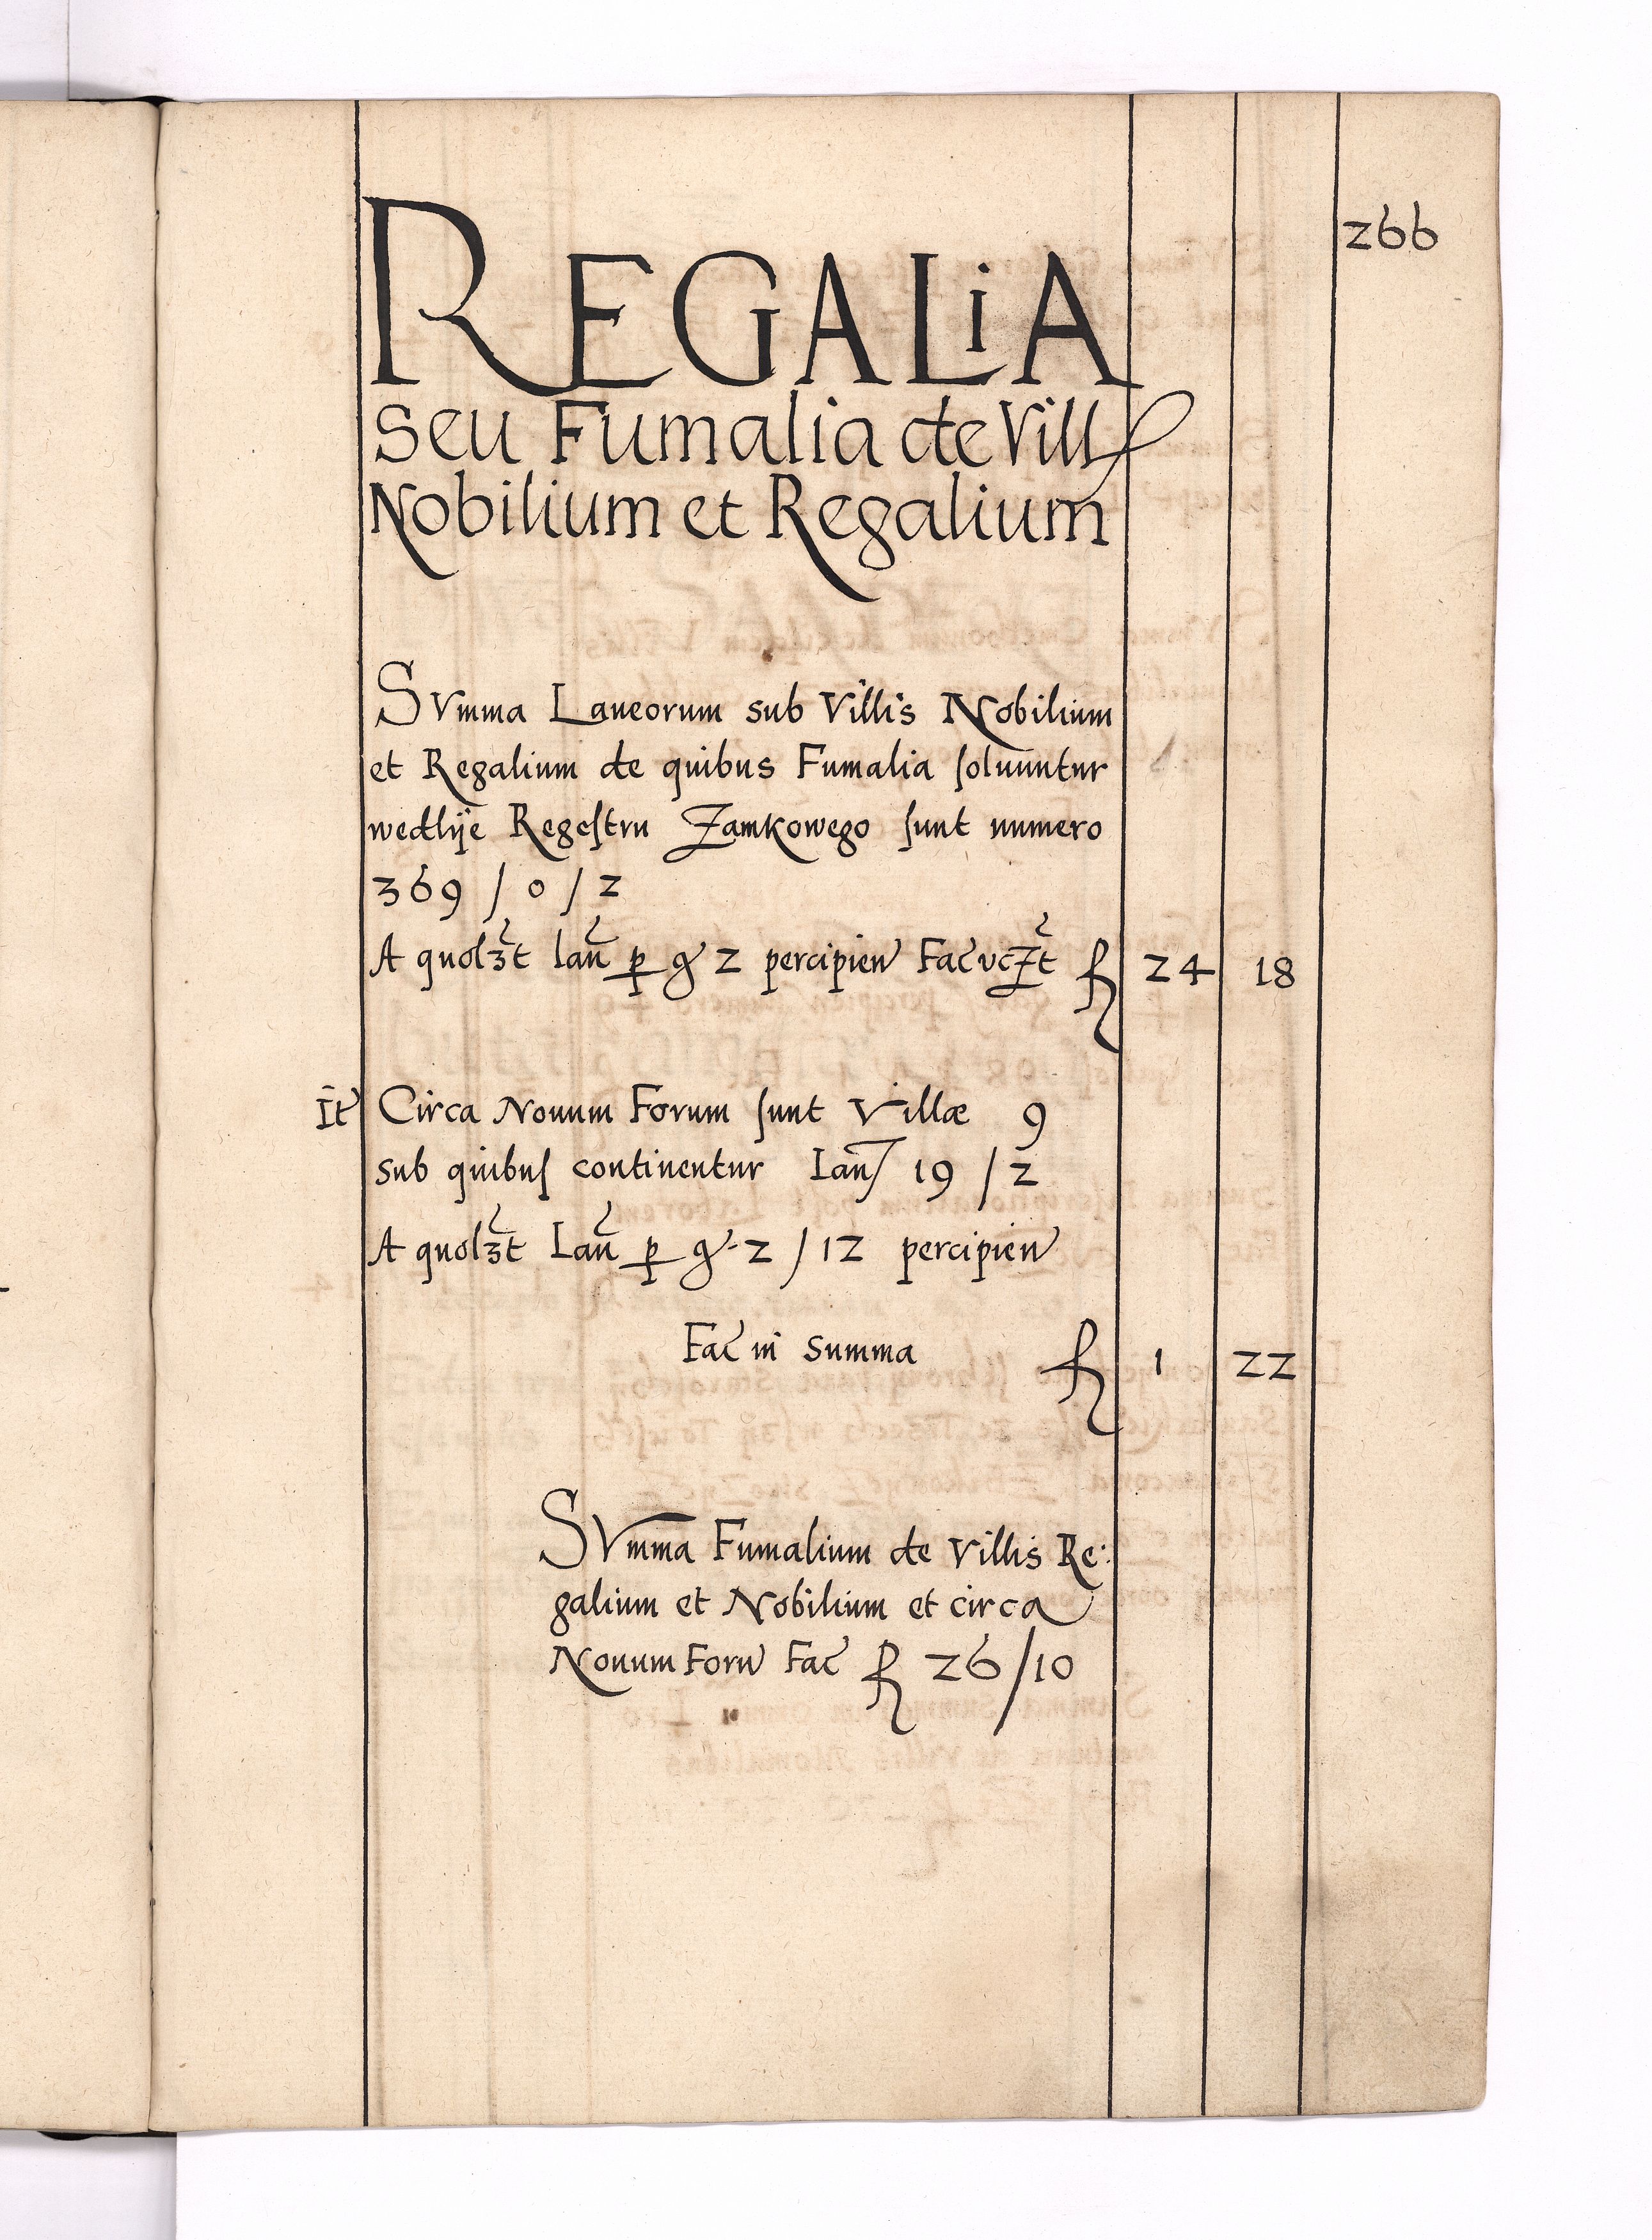 266
REGALiA
seu Fumalia de Vill
Nobilium et Regalium
SVmma Laneorum sub Villis Nobilium
et Regalium de quibus Fumalia ſoluuntur
wedlije Regeſtru Zamkowego ſunt numero
369 / 0 / 2
A quolꝫt lan̄ ꝑ gͬ 2 percipien Fac̄ vcZt fl 24 18
It̄ Circa Nouum Forum ſunt Villæ 9
sub quibuſ continentur Lan̄ 19 / 2
A quolꝫt Lan̄ ꝑ gͬ 2 / 12 percipien
Fac̄ in summa fl 1 22
SVmma Fumalium de Villis Re:
galium et Nobilium et circa
Nouum Foru Fac̄ fl 26/10